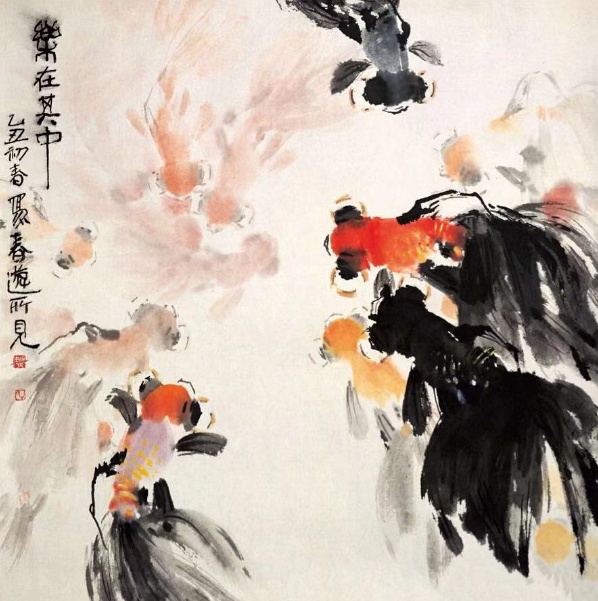 樂在其中
乙丑初春 春遊所見